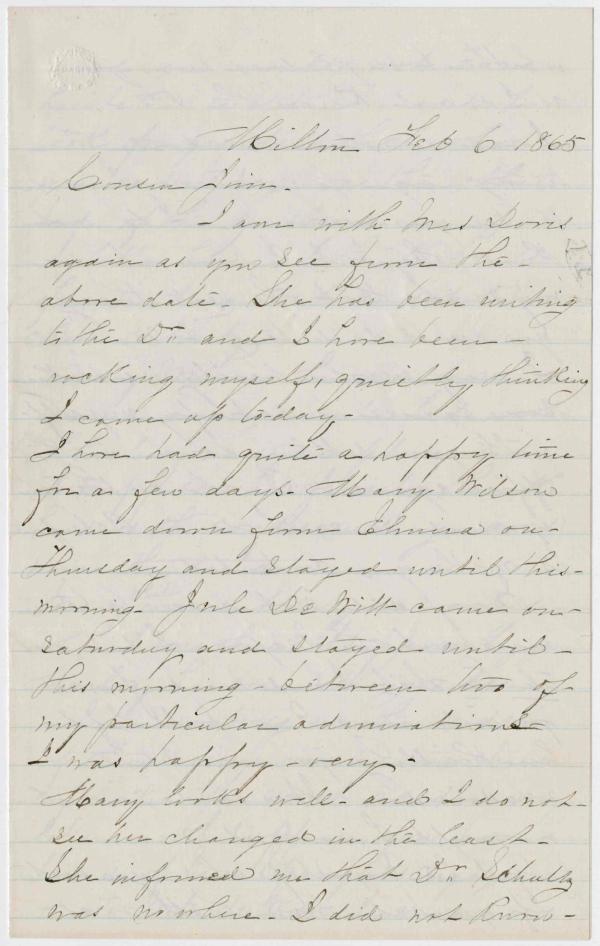 Milton Feb 6 1865
Cousin Jim.
I am with Mrs Davis
again as you see from the -
above date - She has been writing
to the Dr. and I have been -
rocking myself, quietly, thinking
I came up to-day -
I have had quite a happy time
for a few days - Mary Wilson
came down from Elmira on -
Thursday and stayed until this -
morning - Jule De Witt came on -
Saturday and stayed until -
this morning - between two of -
my particular admirations -
I was happy - very -
Mary looks well - and I do not -
see her changed in the least -
She informed me that Dr. Schultz
was no where - I did not know -